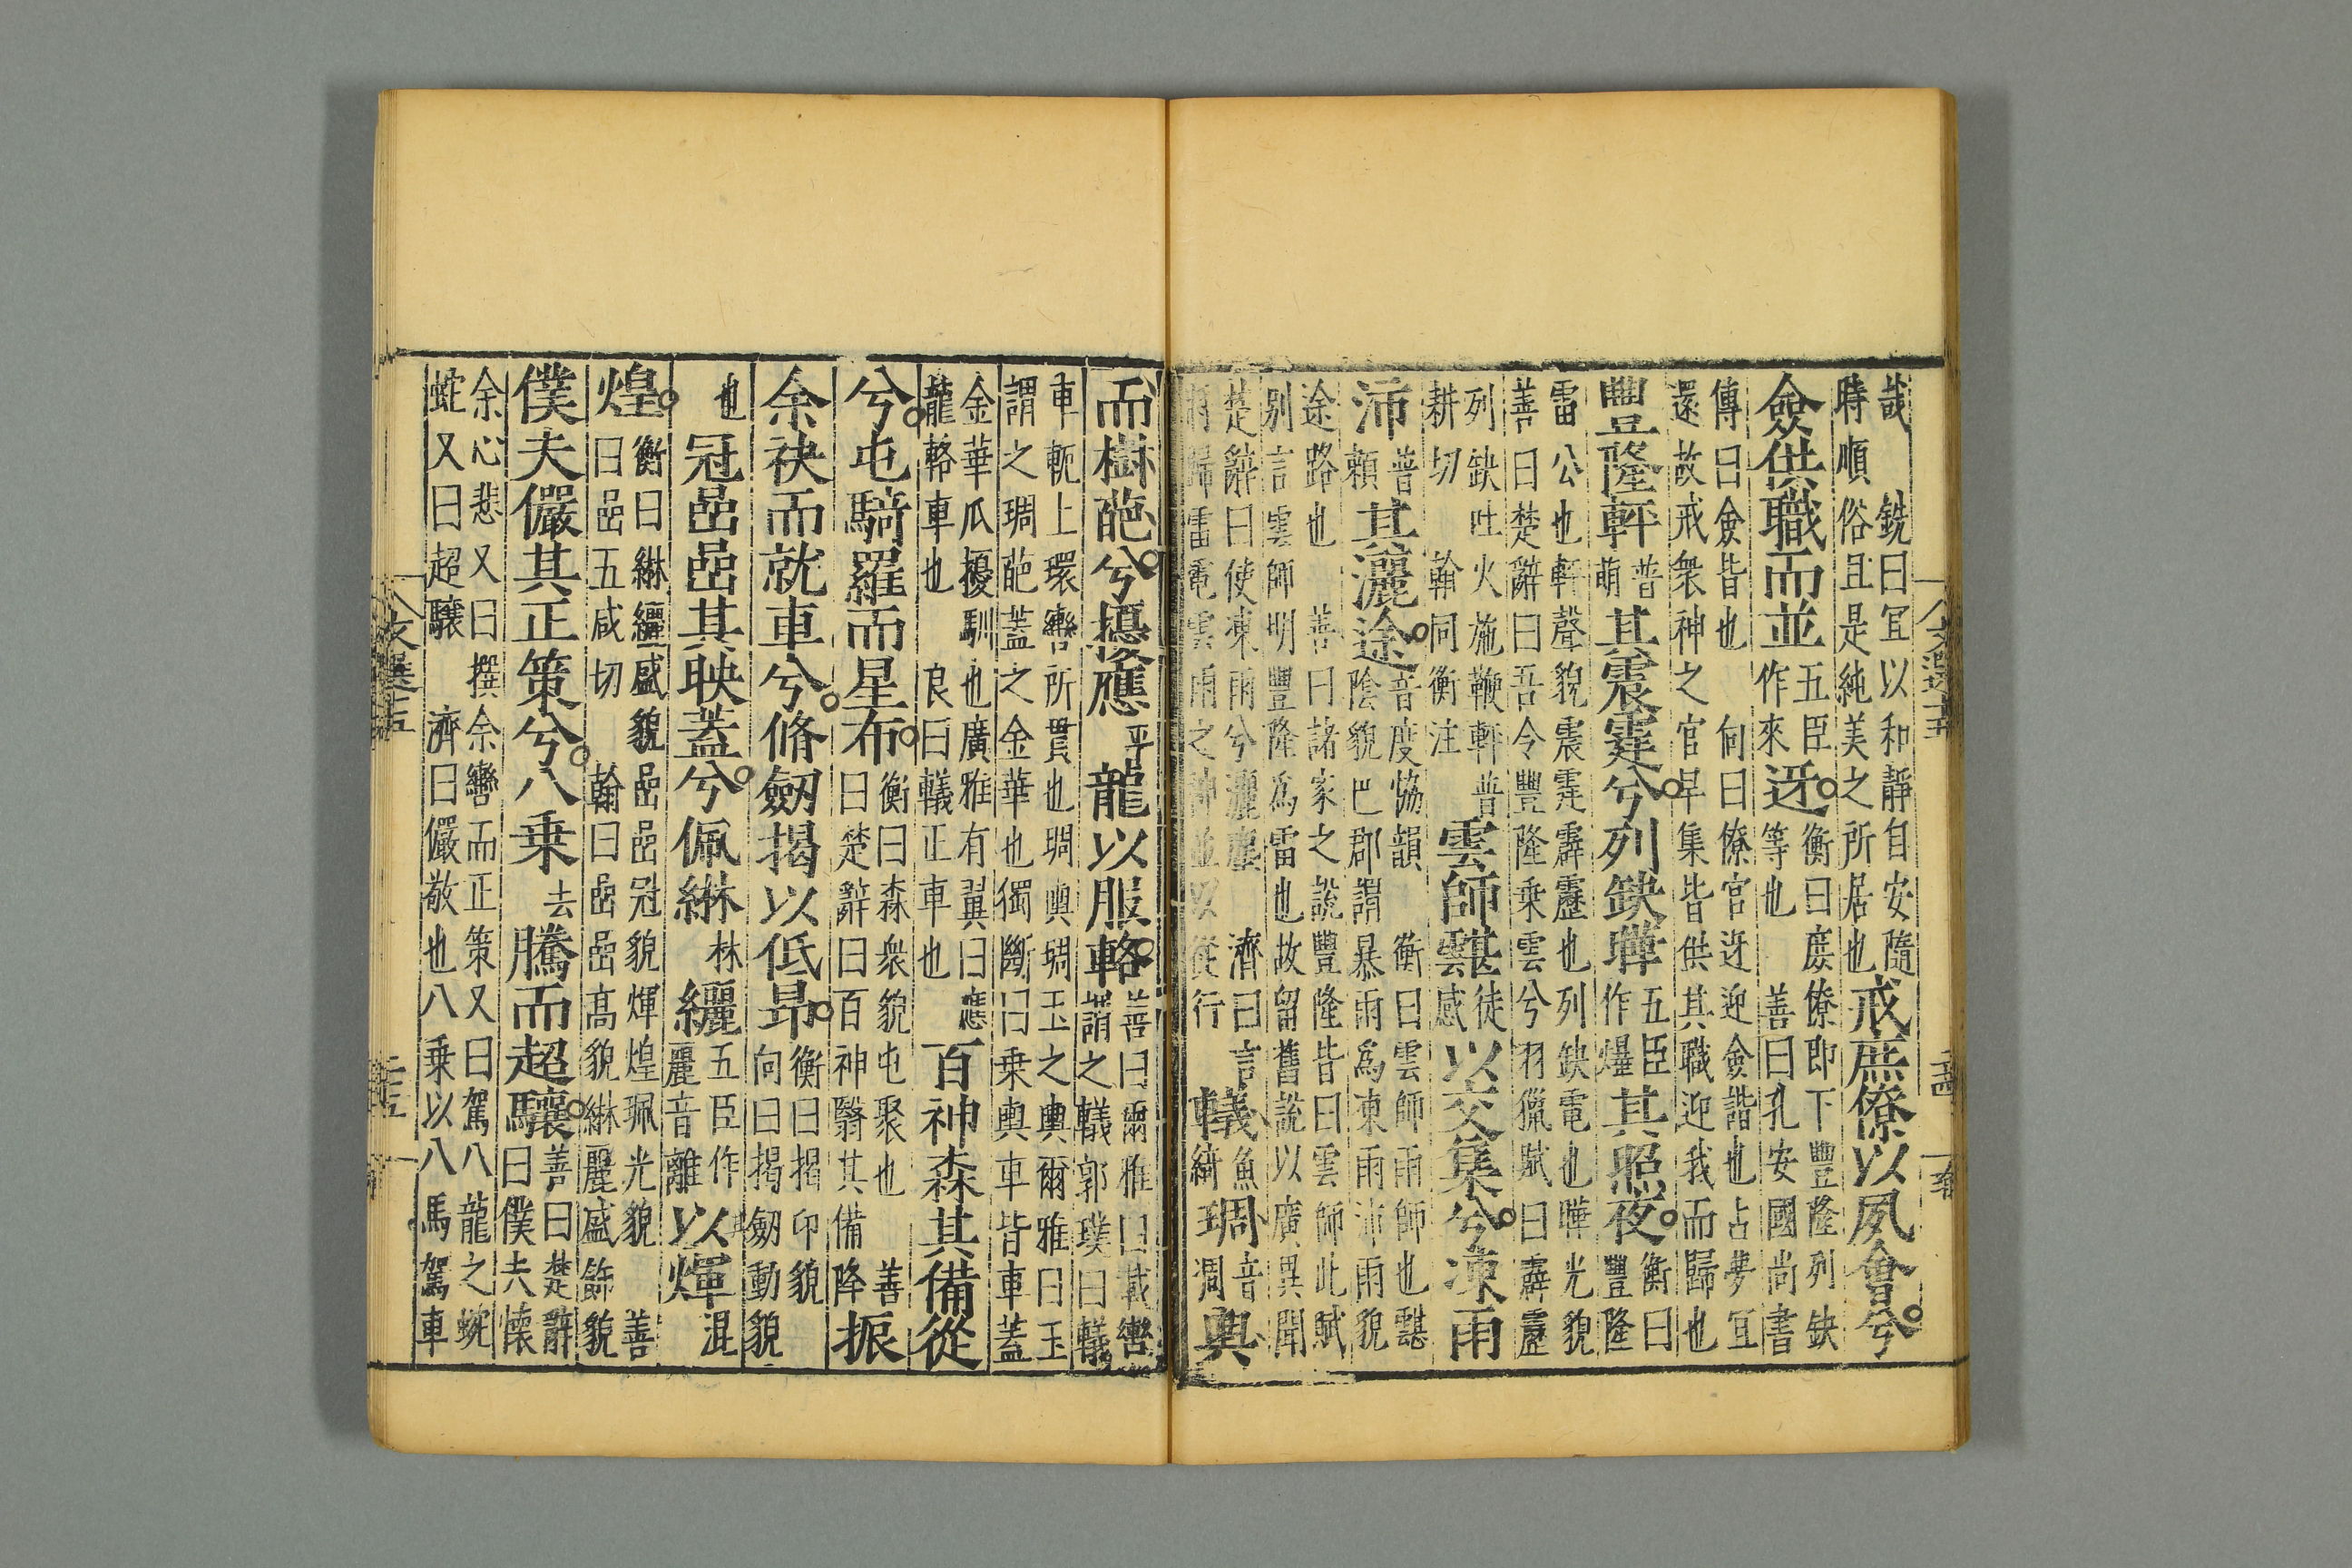 哉 銑曰冝以和靜自安隨時順俗且是純美之所居也 戒庶僚以夙會兮
僉供職而並 五臣作來 迓 衡曰庶僚即下豐隆列缺等也 善曰孔安國尚書
傳曰僉皆也 向曰僚官迓迎僉諧也占夢冝還故戒衆神之官早集皆供其職迎我而歸也
豐隆軯 普萌 其震霆兮列缺曄 五臣作爗 其照夜 衡曰豐隆
雷公也軯聲貌震霆霹靂也列缺電也曄光貌善曰楚辭曰吾令豐隆乘雲兮羽獵賦曰霹靂
列缺吐火施鞭軯普耕切 翰同衡注 雲師䨴 徒感 以交集兮凍雨
沛 普賴 其灑途 音度協韻 衡曰雲師雨師也䨴陰貌巴郡謂暴雨爲凍雨沛雨貌
途路也 善曰諸家之說豐隆皆曰雲師此賦別言雲師明豐隆爲雷也故留舊說以廣異聞
楚辭曰使凍雨兮灑塵 濟曰言將歸雷電雲雨之神並以從行 轙 魚綺 琱 音凋 輿
而樹葩兮擾應 平 龍以服輅 善曰爾雅曰載轡謂之轙郭璞曰轙
車軛上環轡所貫也琱輿琱玉之輿爾雅曰玉謂之琱葩蓋之金華也獨斷曰乘輿車皆車蓋
金華瓜擾馴也廣雅有翼曰應龍輅車也 良曰轙正車也 百神森其備從
兮屯騎羅而星布 衡曰森衆貌屯聚也 善曰楚辭曰百神翳其備降 振
余袂而就車兮脩劒揭以低昻 衡曰揭卬貌 向曰揭劒動貌
也 冠嵒嵒其映蓋兮佩綝 林 纚 五臣作麗音離 以煇 混
煌 衡曰綝纚盛貌嵒嵒冠貌煇煌珮光貌 善曰嵒五咸切 翰曰嵒嵒高貌綝麗盛飾貌
僕夫儼其正策兮八乘 去 騰而超驤 善曰楚辭曰僕夫懷
余心悲又曰撰余轡而正策又曰駕八龍之蜿蛇又曰超驤 濟曰儼敬也八乘以八馬駕車